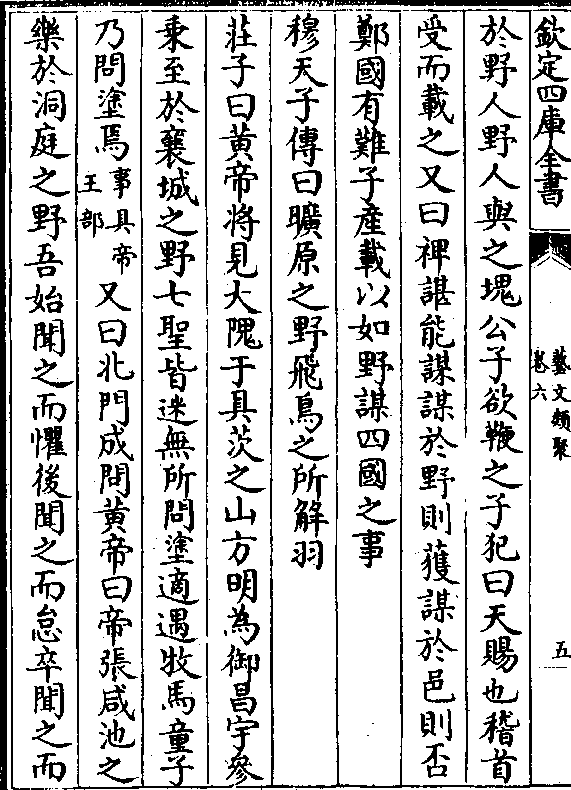 欽定四庫全書
藝文類聚
卷六
五
於野人野人與之塊公子欲鞭之子犯曰天賜也稽首
受而載之又曰裨諶能謀謀於野則獲謀於邑則否
鄭國有難子產載以如野謀四國之事
穆天子傳曰曠原之野飛鳥之所解羽
莊子曰黃帝將見大隗于具茨之山方明為御昌宇參
乘至於襄城之野七聖皆迷無所問塗適遇牧馬童子
乃問塗焉事具帝王部又曰北門成問黃帝曰帝張咸池之
樂於洞庭之野吾始聞之而懼後聞之而怠卒聞之而